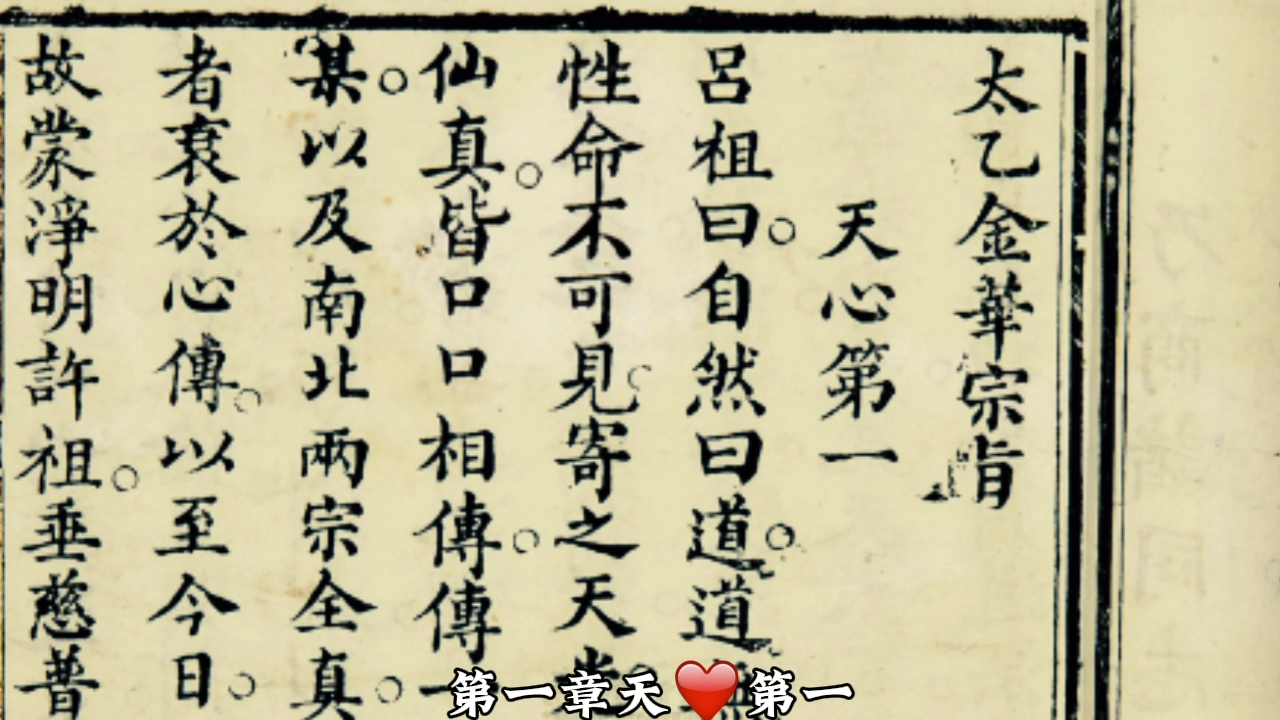 太乙金華宗旨
天心第一
呂祖曰。自然曰道。道
性命不可見。寄之天
仙真。皆口口相傳。傳一
某。以及南北兩宗全真。
者衰於心傳。以至今日。
故蒙淨明許祖。垂慈普
第一章天❤️第一